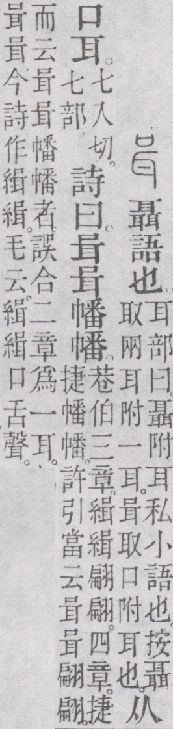 咠 聶語也。耳部曰。聶附耳私小語也。按聶取兩耳附一耳。咠取口附耳也。从
口耳。七入切。七部。詩曰。咠咠幡幡。巷伯三章。緝緝翩翩。四章。捷捷幡幡。許引當云咠咠翩翩。
而云咠咠幡幡者。誤合二章爲一耳。
咠咠今詩作緝緝。毛云。緝緝口舌聲。